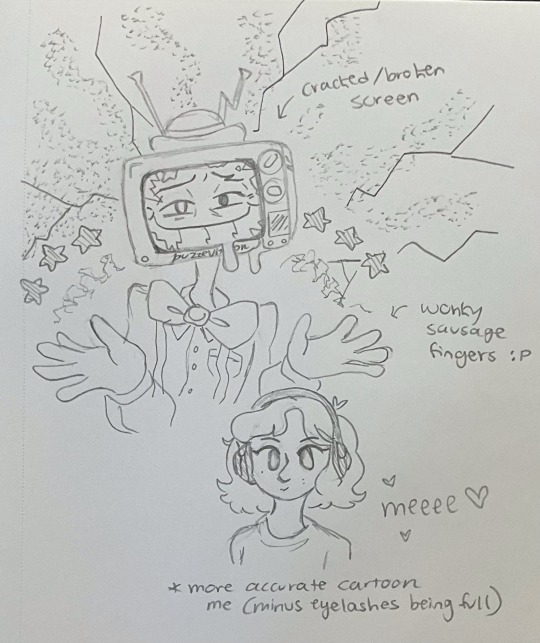 cracked/broken
screen
puzzlevision
wonky
sausage
fingers :P
meeee ♡
* more accurate cartoon
me (minus eyelashes being full)